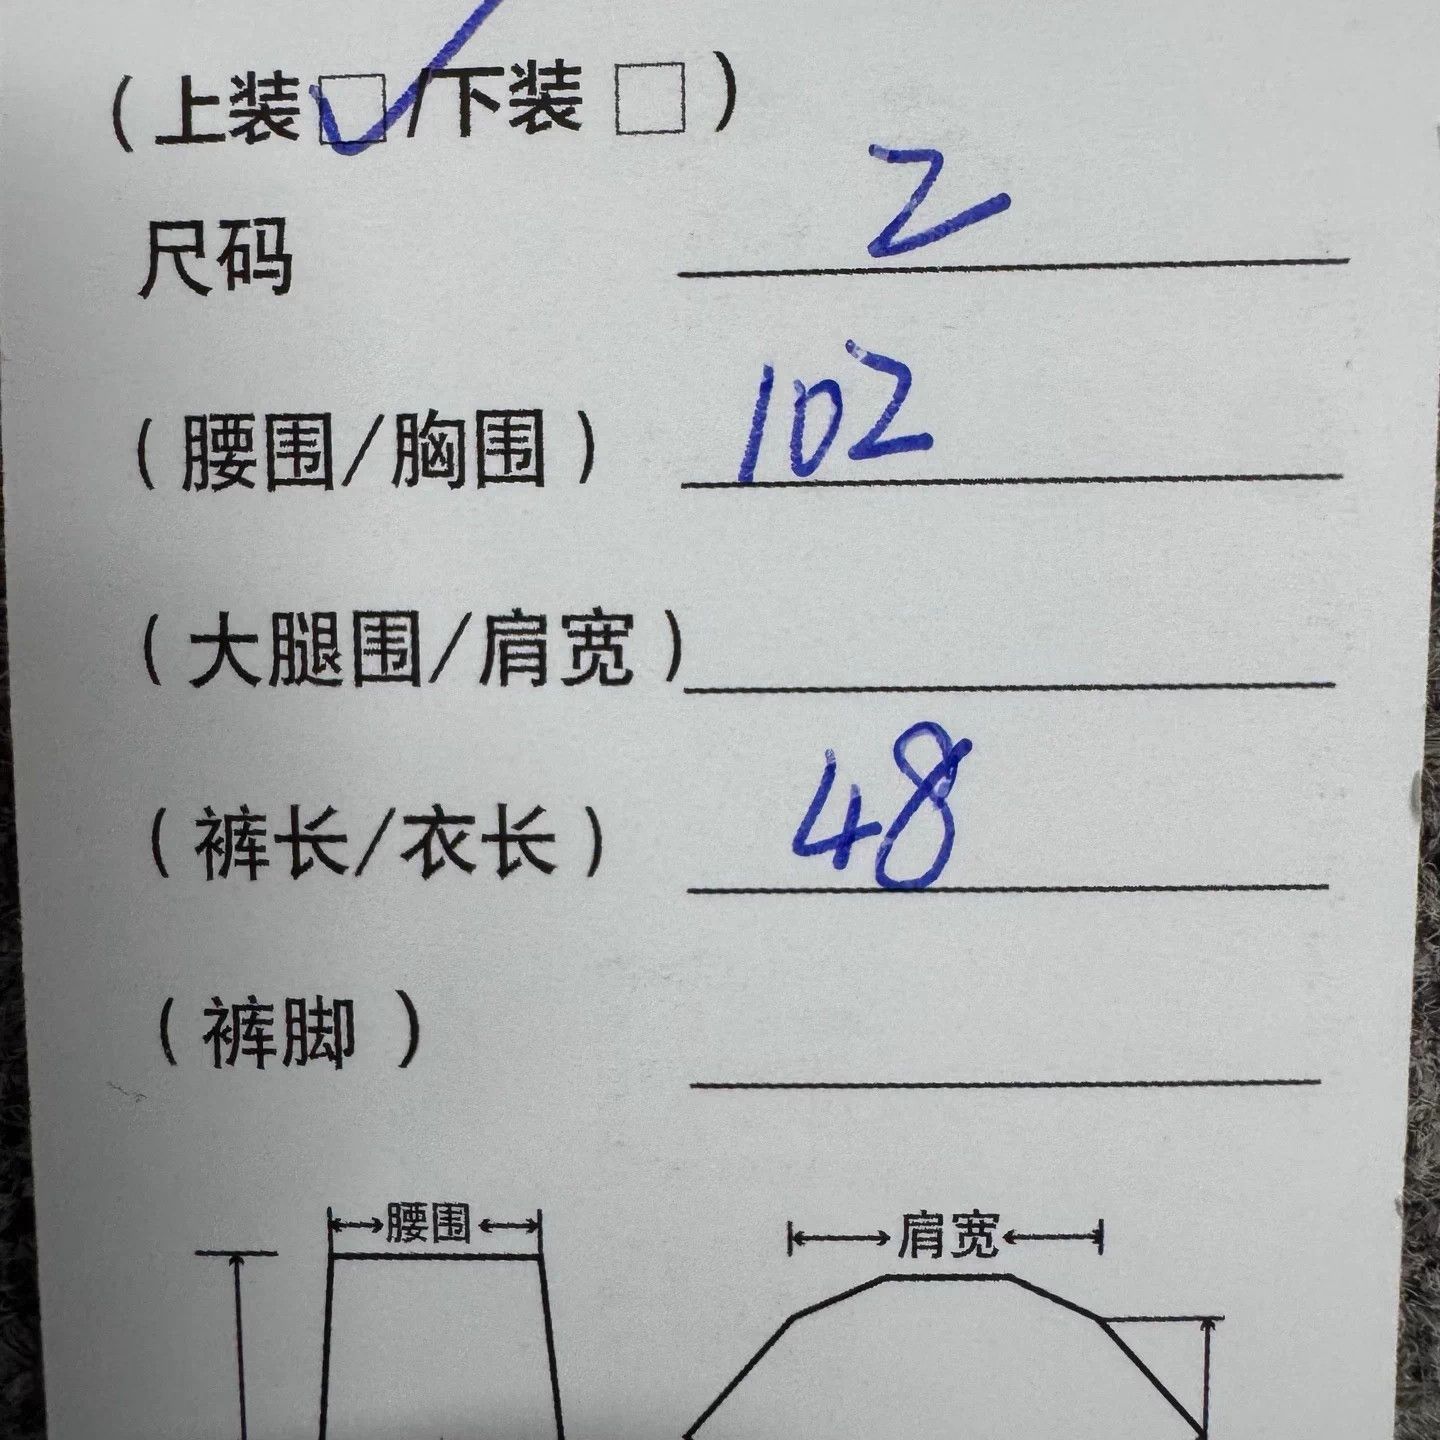 (上装☑/下装□)
尺码 2
(腰围/胸围) 102
(大腿围/肩宽)
(裤长/衣长) 48
(裤脚)
腰围 肩宽